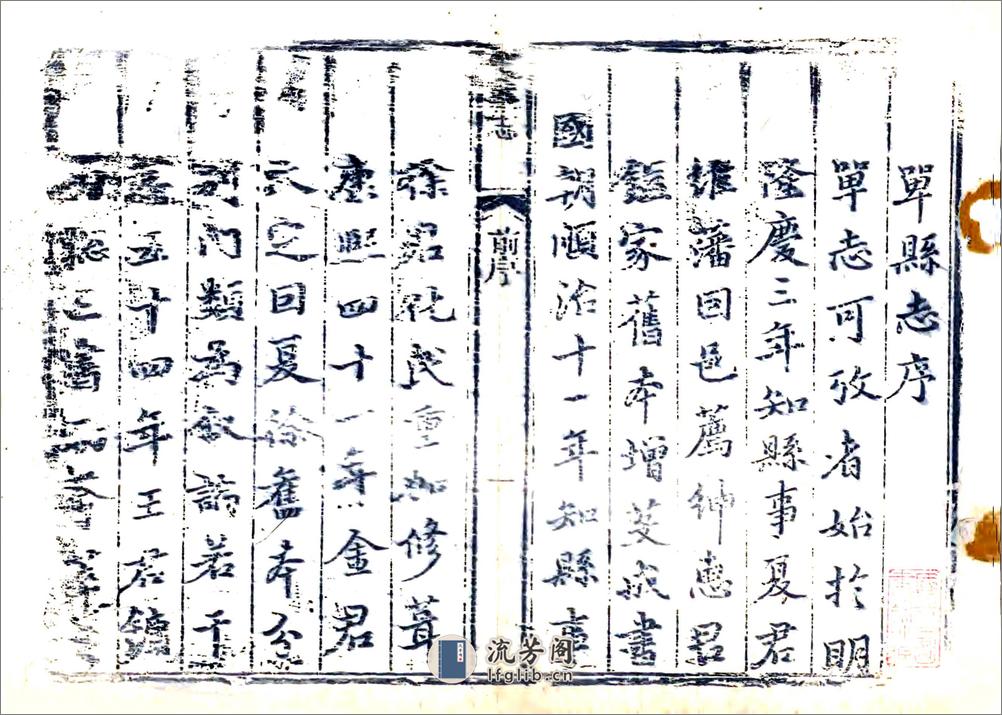 單縣志序
單志可攷者始於明
隆慶三年知縣事夏君
維藩因邑薦紳惠君
家舊本增芟成書
國朝順治十一年知縣事
志
前序
徐君化民重加修葺
康熙四十一年金君
因夏徐舊本分
別門類為若干
五十四年王君鏞
總三舊志薈
流芳阁
lfglib.cn